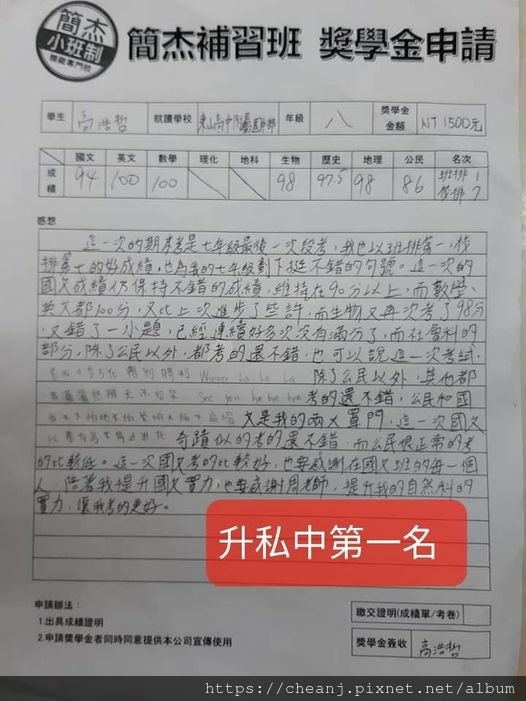 簡杰
小班制
簡杰補習班 獎學金申請
學生 高浩哲 就讀學校 年級 八 獎學金金額 NT 1500元
國文 英文 數學 理化 地科 生物 歷史 地理 公民 名次
成績 94 100 100 98 97.5 98 86 班排 1
校排 7
感想
這一次的期末考是七年級最後一次段考，我也以班排第一，校
排第七的好成績，也為我的七年級劃下挺不錯的句號。這一次的
國文成績仍保持不錯的成績，維持在90分以上，而數學、
英文都100分，又比上次進步了些許，而生物又再次考了98分
又錯了一小題，已經連續好多次沒有滿分了，而社會科的
部分，除了公民以外，都考的還不錯，也可以說這一次考試，
Winner La La La 除了公民以外，其他都
See you bye bye bye 考的還不錯，公民和國
文是我的兩大罩門，這一次國文
奇蹟似的考的還不錯，而公民很正常的考
的比較低。這一次國文考的比較好，也要感謝在國文班的每一個
人，陪著我提升國文實力，也要感謝周老師，提升我的自然科的
實力，讓我考的更好。
升私中第一名
申請辦法：
1.出具成績證明
2.申請獎學金者同時同意提供本公司宣傳使用
繳交證明(成績單/考卷)
獎學金簽收 高浩哲
https://cheanj.pixnet.net/album